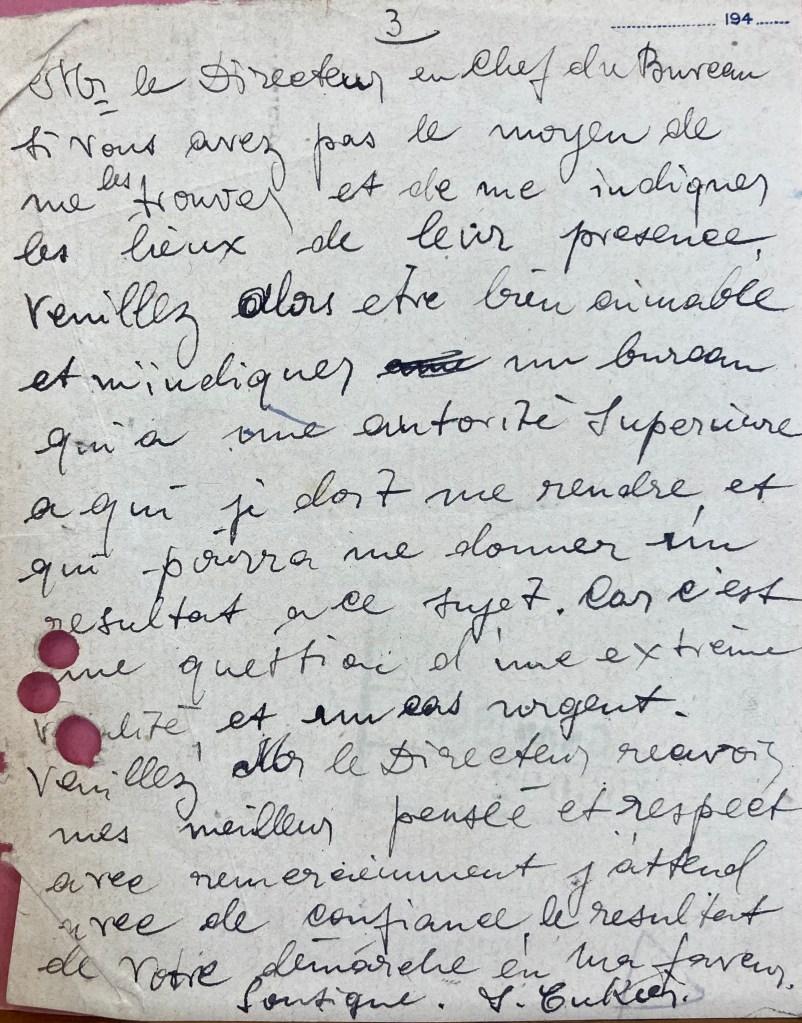 3
194
Mr le Directeur en Chef du Bureau
si vous avez pas le moyen de
me les trouver et de me indiquer
les lieux de leur presence,
Veuillez alors etre bien aimable
et m'indiquer un bureau
qui a une autorité Superieure
a qui je doit me rendre, et
qui pourra me donner un
resultat a ce sujet. Car c'est
une question d'une extrème
et un cas urgent.
Veuillez Mr le Directeur recevoir
mes meilleur pensée et respect
avec remerciemment j'attend
avec de confiance, le resultat
de Votre démarche en ma faveur.
Sousigne. S. Cukier.